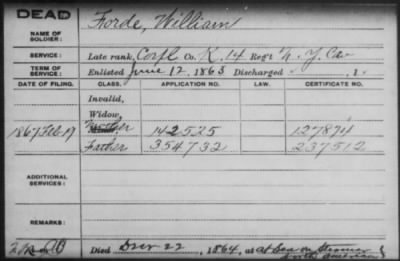 DEAD
Forde, William
NAME OF SOLDIER:
SERVICE: Late rank, Corpl Co. K. 14 Reg't N. Y. Cav
TERM OF SERVICE: Enlisted June 12, 1863 Discharged , 1
DATE OF FILING. CLASS. APPLICATION NO. LAW. CERTIFICATE NO.
Invalid,
Widow,
1867 Feb 19 Mother 142525 127874
Father 354732 237512
ADDITIONAL SERVICES:
REMARKS:
Died Decr 22, 1864, at At Sea on Steamer
North American